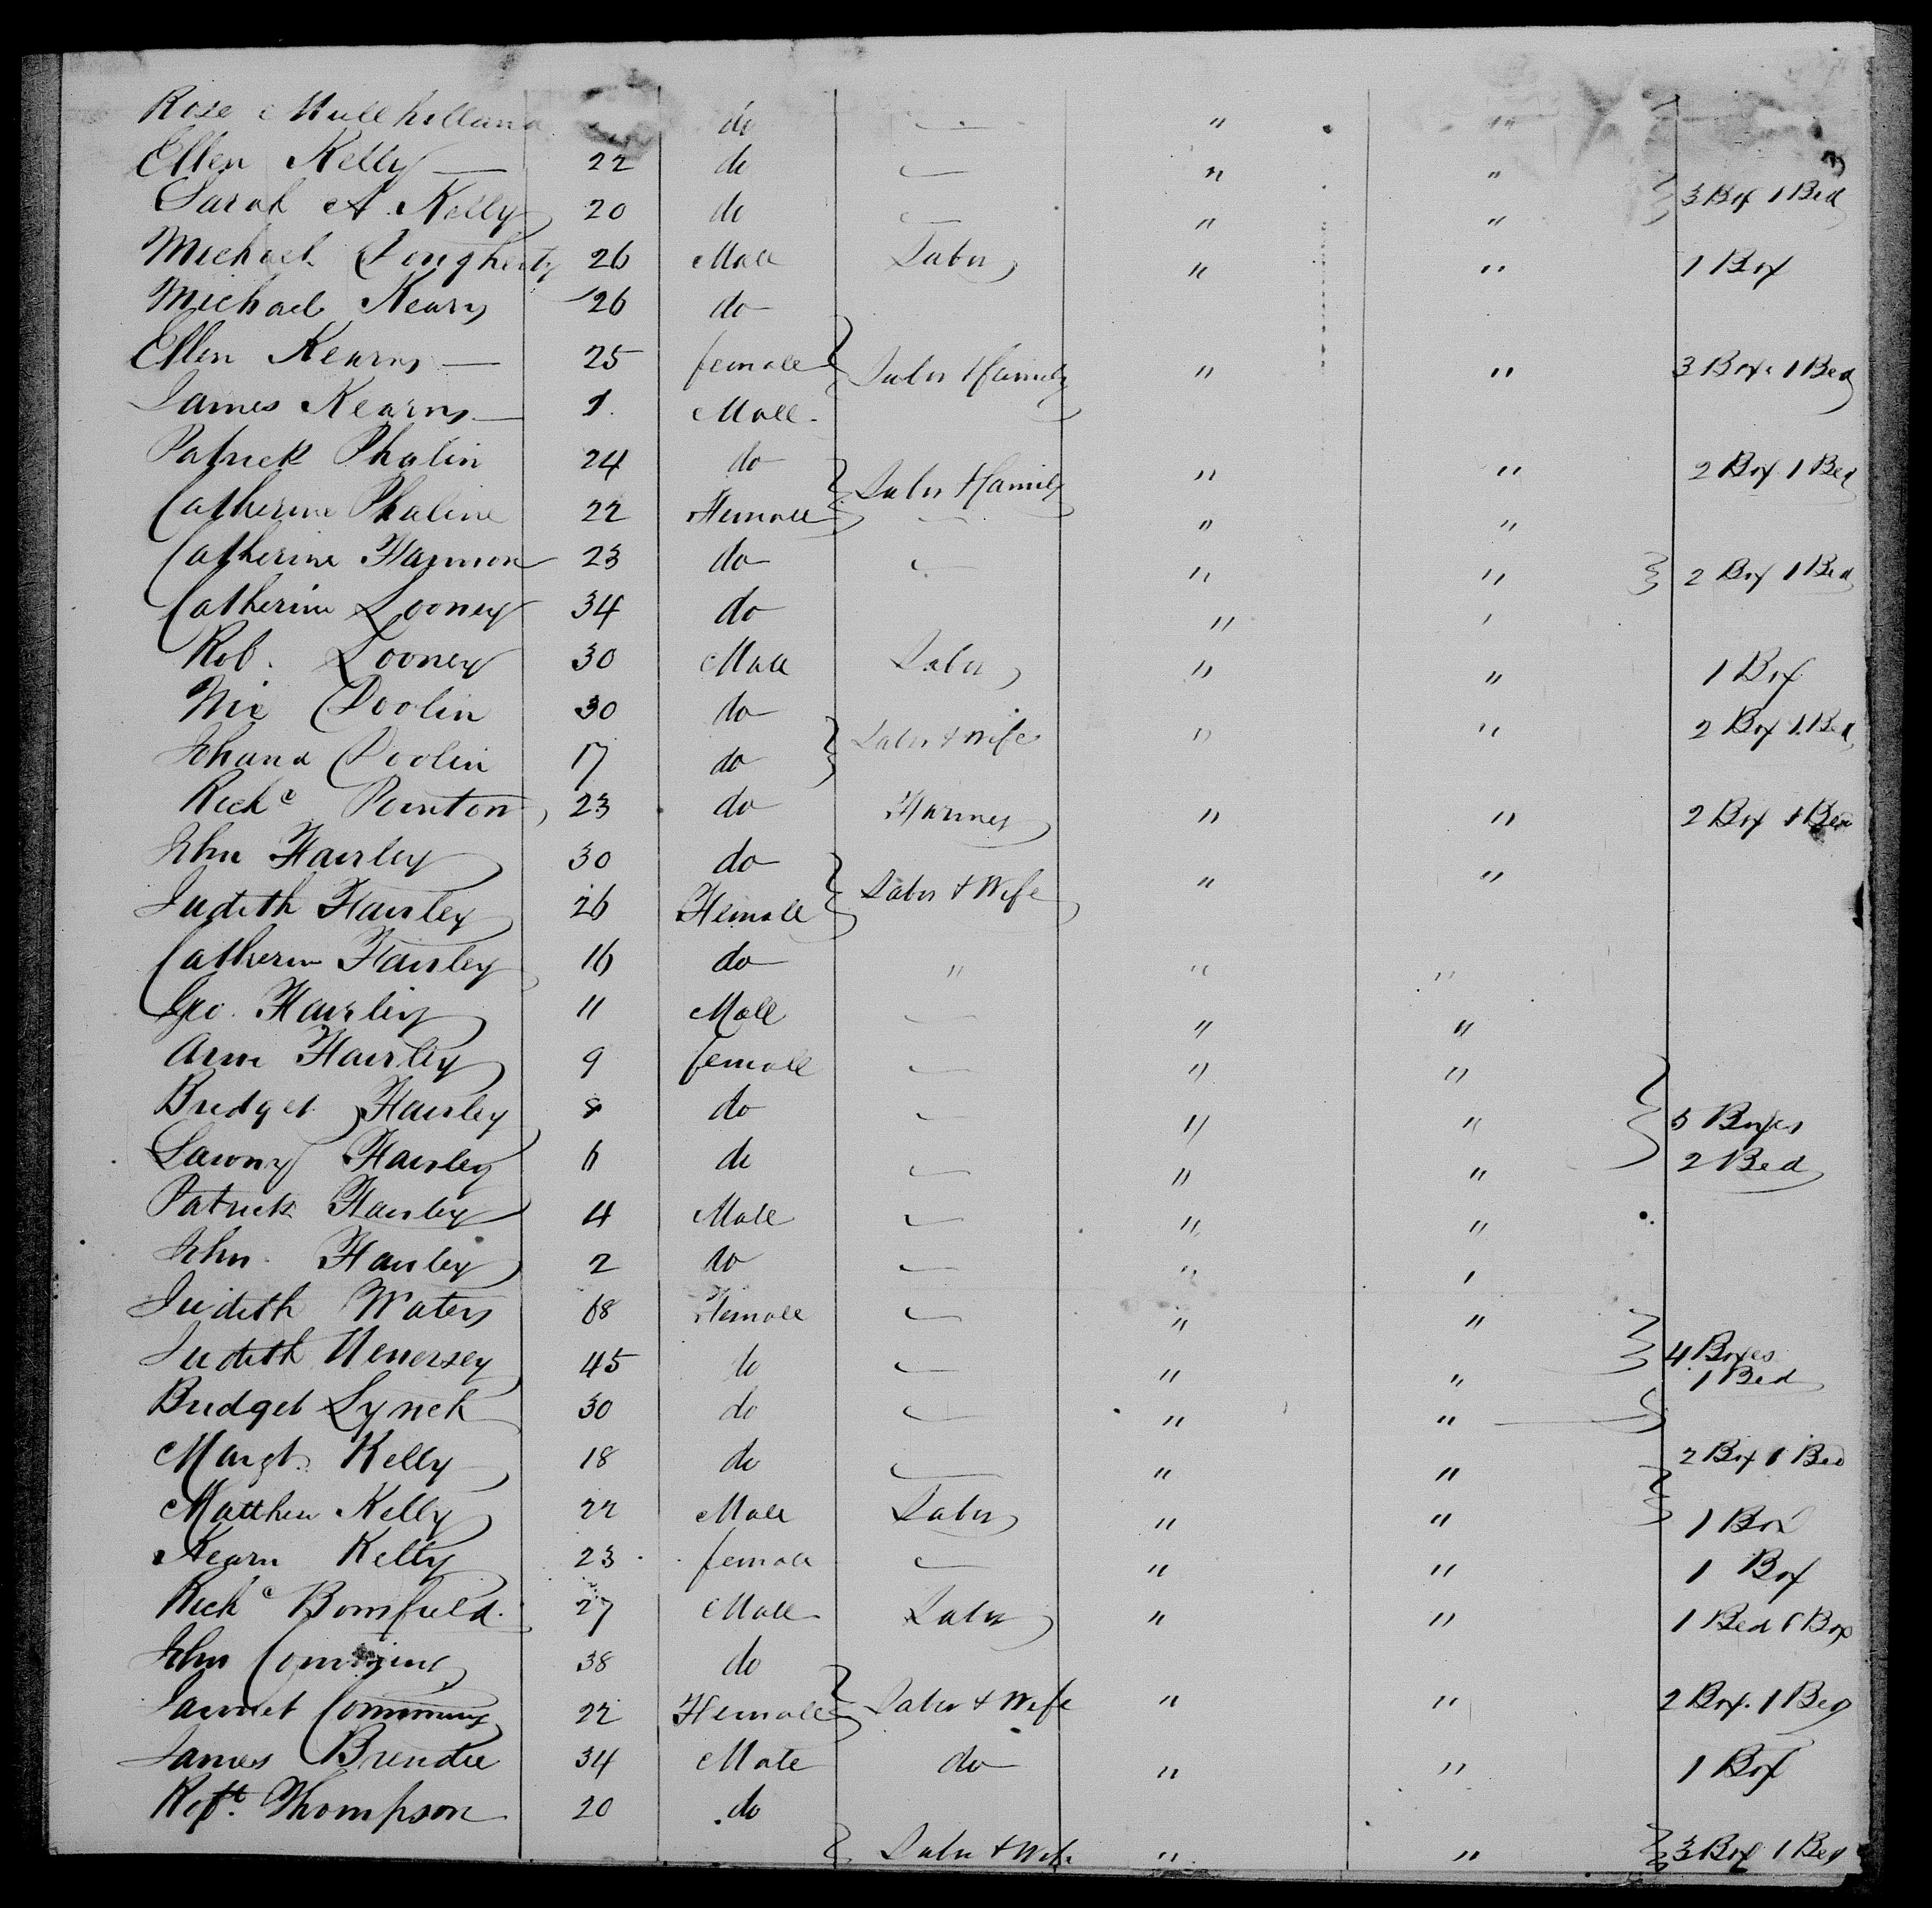 Rose Mullholland do " "
Ellen Kelly 22 do " "
Sarah A. Kelly 20 do " " 3 Box 1 Bed
Michael Dougherty 26 Male Labor " " 1 Box
Michael Kearns 26 do
Ellen Kearns 25 female Labor & family " " 3 Box 1 Bed
James Kearns 1 Male
Patrick Phalin 24 do Labor & family " " 2 Box 1 Bed
Catherine Phaline 22 Female " "
Catherine Hannon 23 do " " 2 Box 1 Bed
Catherine Looney 34 do " "
Rob. Looney 30 Male Labor " " 1 Box
Doolin 30 do Labor & Wife " " 2 Box 1 Bed
Johana Doolin 17 do
Richd Pointon 23 do Farmer " " 2 Box 1 Bed
John Hanley 30 do Labor & Wife " "
Judith Hanley 26 Female
Catherin Hanley 16 do " " "
Geo. Hanley 11 Male " "
Ann Hanley 9 female " "
Bridget Hanley 8 do " " 5 Boxes
Hanley 6 do " " 2 Bed
Patrick Hanley 4 Male " "
John Hanley 2 do " "
Judith Waters 68 Female " "
Judith 45 do " " 4 Boxes 1 Bed
Bridget Lynch 30 do " "
Margt. Kelly 18 do " " 2 Box 1 Bed
Matthew Kelly 22 Male Labor " " 1 Box
Kearn Kelly 23 female " " 1 Box
Richd Bomfield 27 Male Labor " " 1 Bed 1 Box
John 38 do
Commins 22 Female Labor & Wife " " 2 Box 1 Bed
James 34 Male do " " 1 Box
Robt. Thompson 20 do
Labor & Wife " " 3 Box 1 Bed